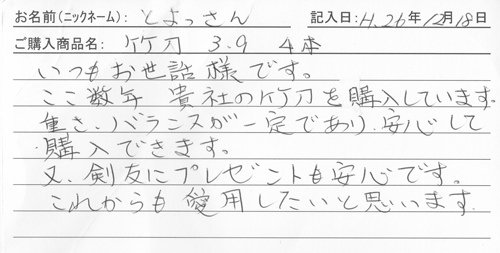 お名前(ニックネーム): とよっさん 記入日: H.26年12月18日
ご購入商品名: 竹刀 3.9 4本
いつもお世話様です。
ここ数年 貴社の竹刀を購入しています。
重さ、バランスが一定であり、安心して
購入できます。
又、剣友にプレゼントも安心です。
これからも愛用したいと思います。